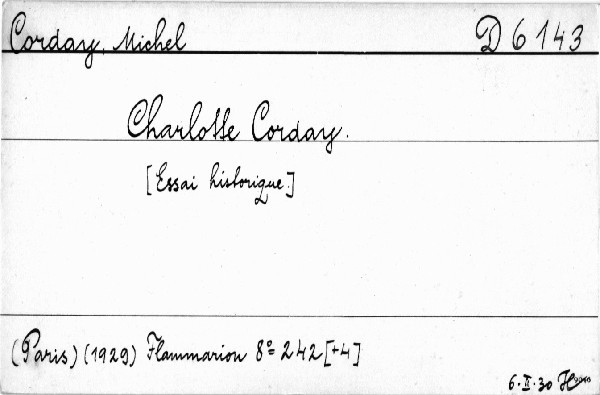 Corday, Michel D 6143
Charlotte Corday.
[Essai historique.]
(Paris) (1929) Flammarion 8º 242 [+4]
6.II.30